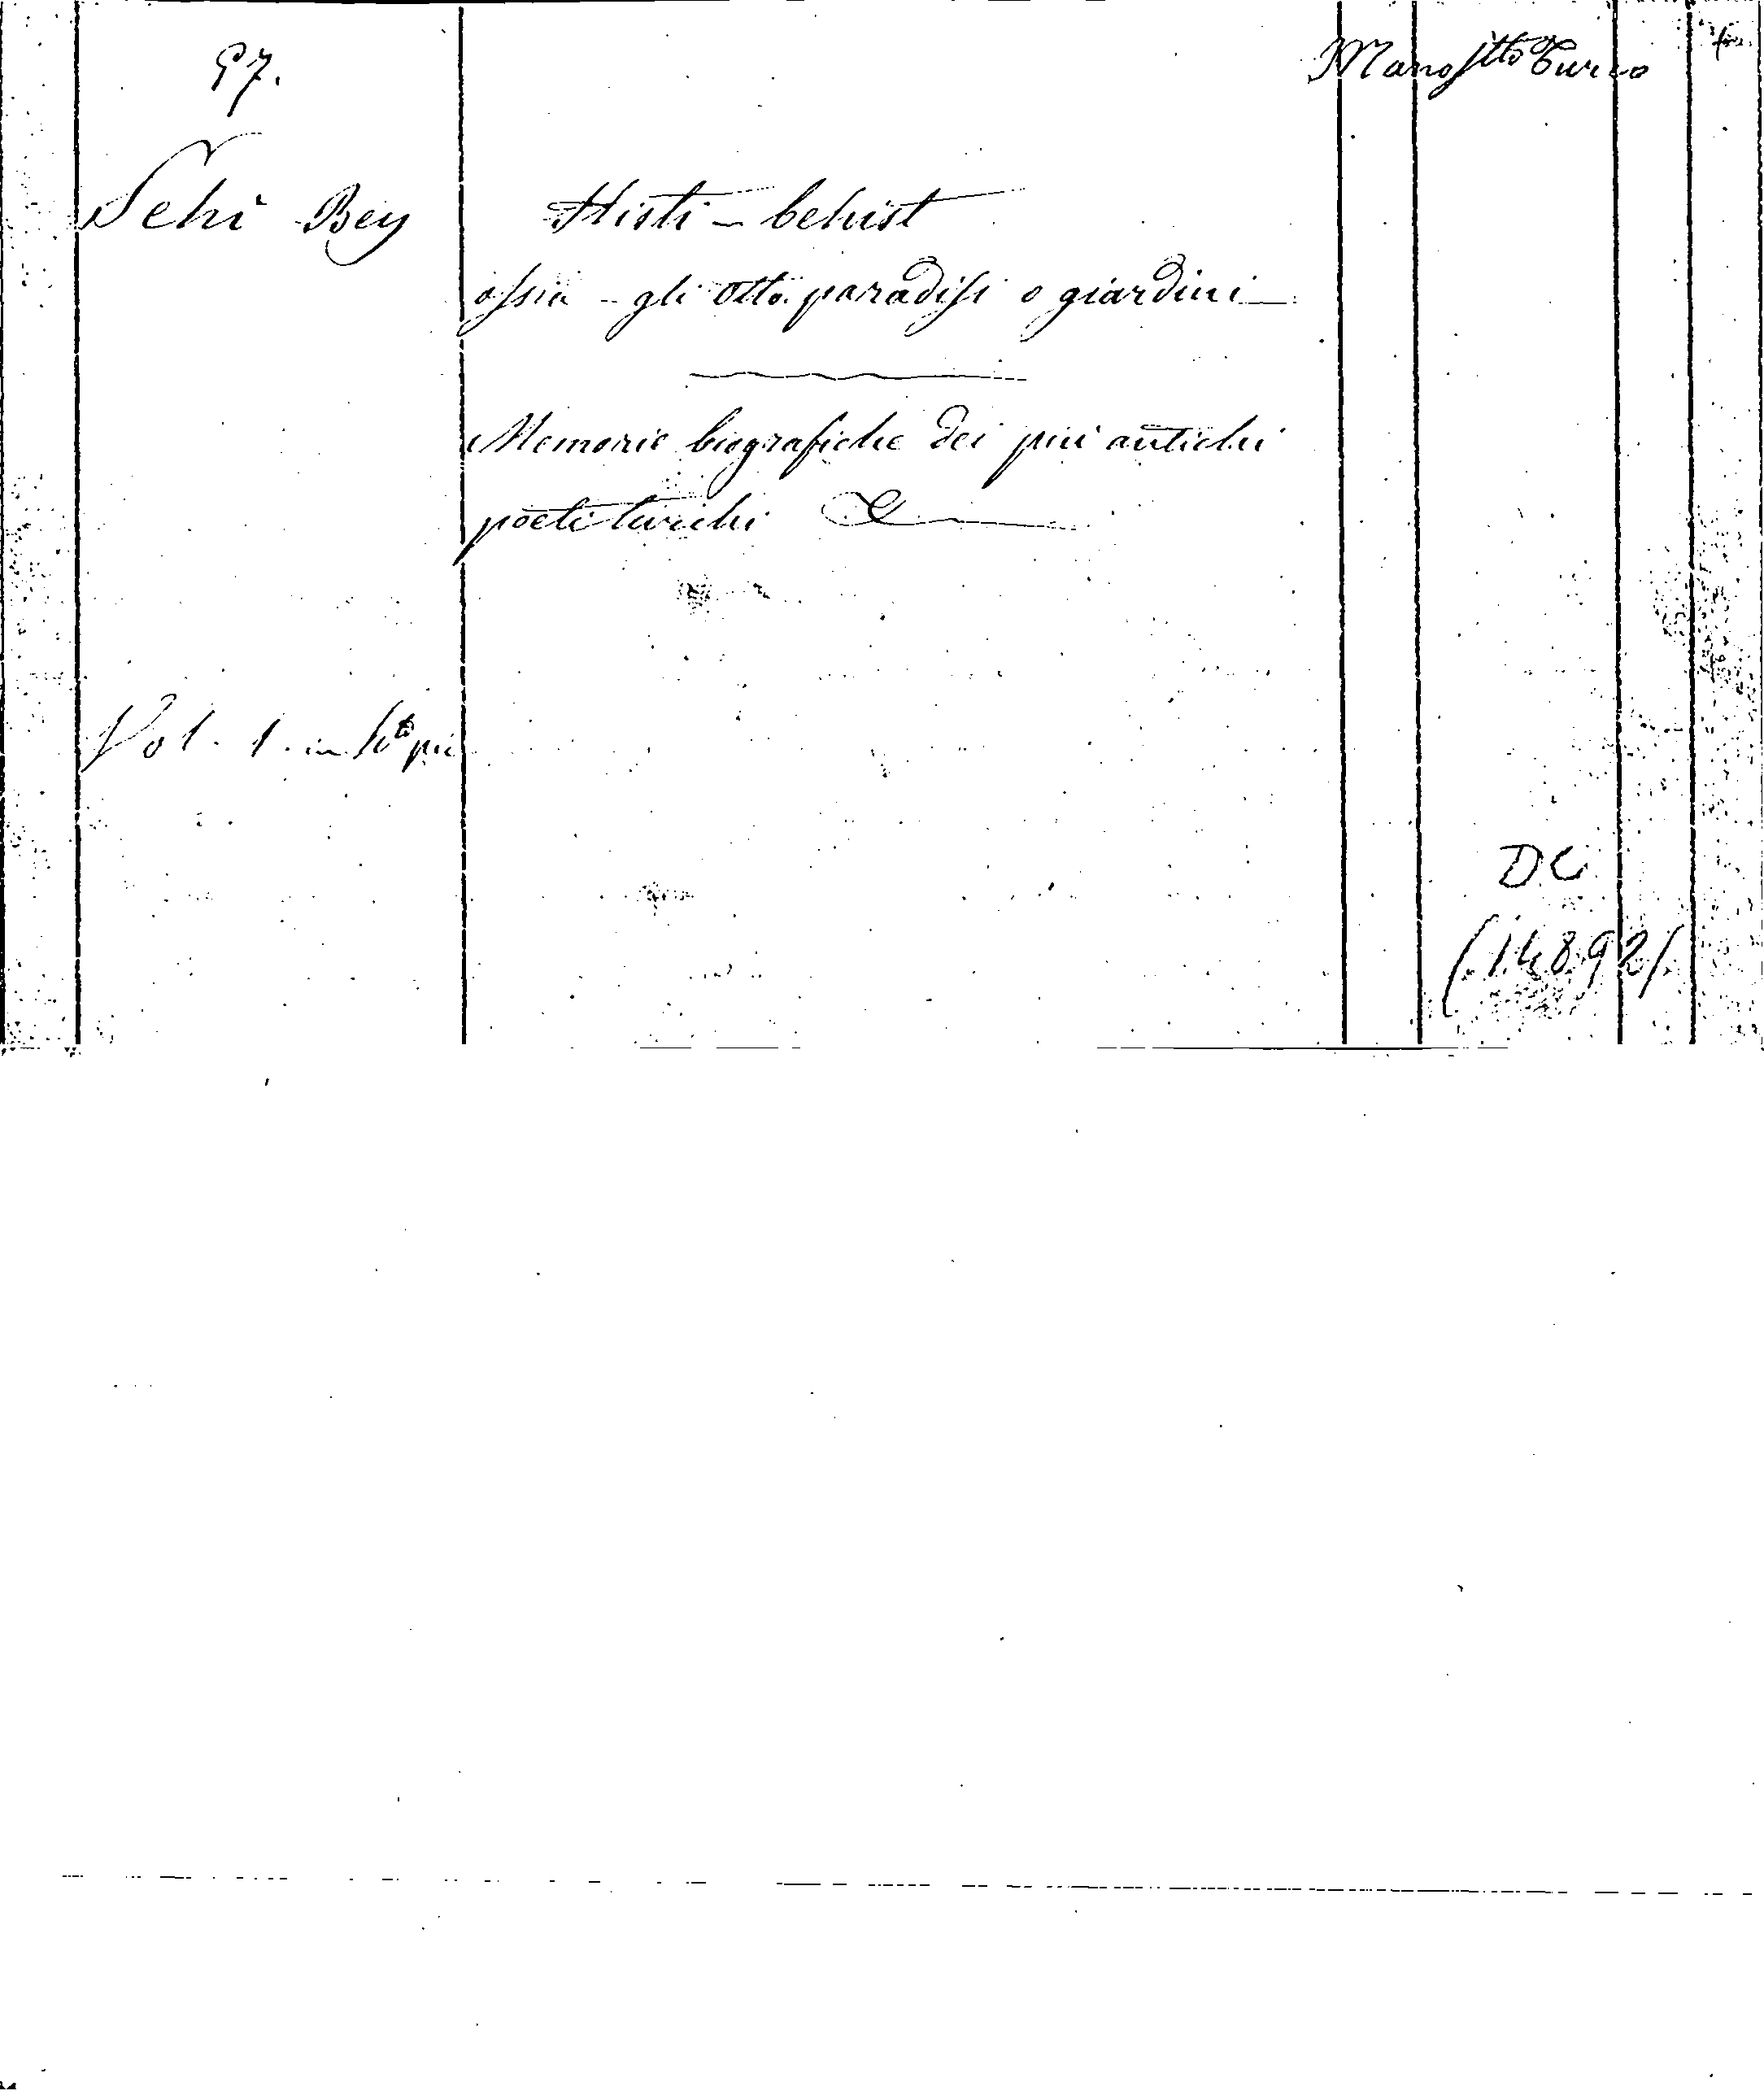 97.
Manostto Turco
Sehi Bey
Histi - behist
ossia - gli otto paradisi o giardini
Memorie biografiche dei più antichi
poeti turchi
Vol. 1. in 4to pic
DC
(14892)